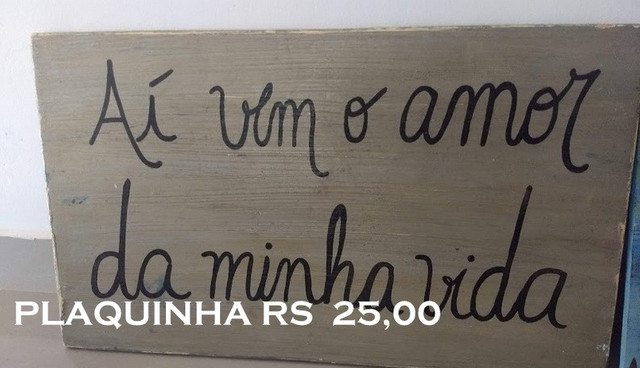 Aí vem o amor
da minha vida
PLAQUINHA RS 25,00